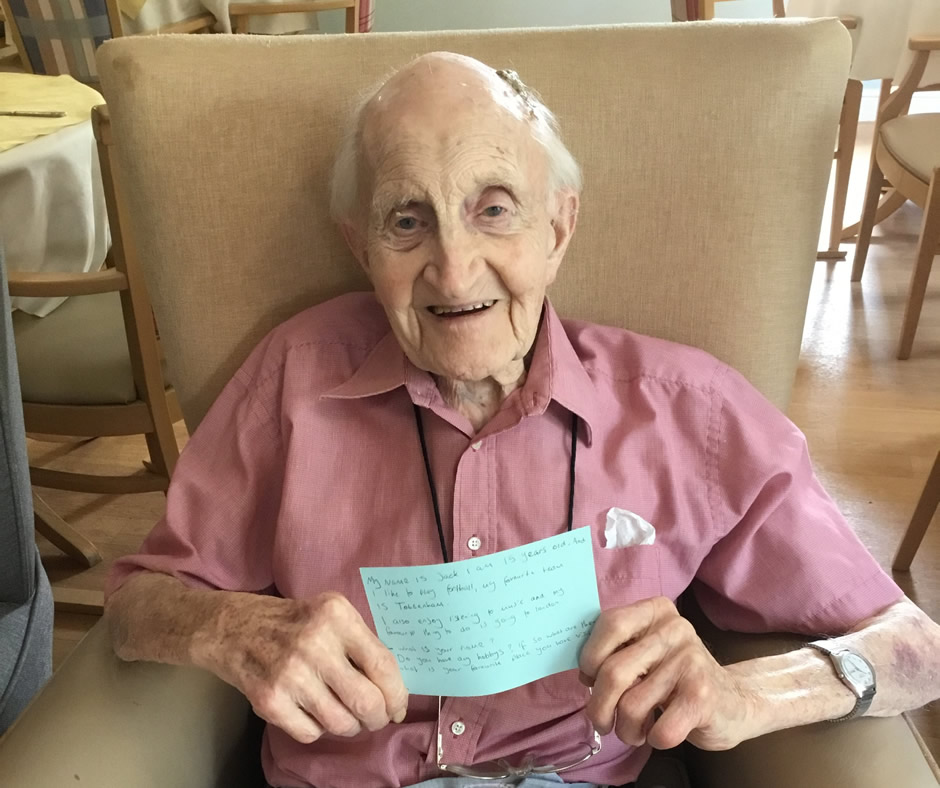 My name is Jack I am 15 years old. And
I like to play football, my favourite team
is Tottenham
I also enjoy listening to music and my
favourite thing to do is going to london
what is your name?
Do you have any hobbys? if so what are they
what is your favourite place you have